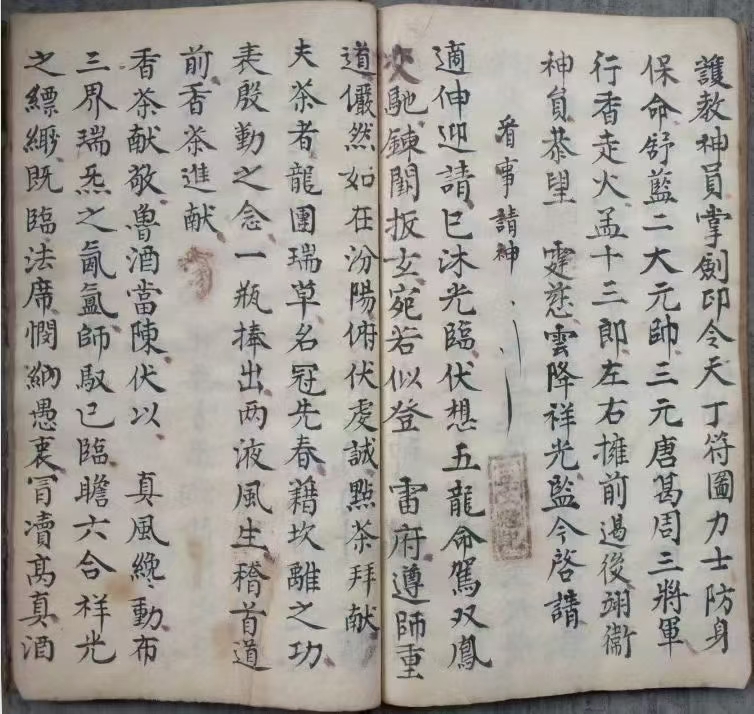 護教神員掌劍印令天丁符圖力士防身
保命舒藍二大元帥三元唐葛周三將軍
行香走火孟十三郎左右擁前遏後翊衞
神員恭望 霆慈雲降祥光監今啓請
看事請神
適伸迎請已沐光臨伏想五龍命駕双鳳
交馳鍊關扳玄宛若似登 雷府遵師重
道儼然如在汾陽俯伏虔誠㸃茶拜献
夫茶者龍團瑞草名冠先春藉坎離之功
表殷勤之念一瓶捧出两液風生稽首道
前香茶進献
香茶献敬魯酒當陳伏以 真風纔動布
三界瑞炁之氤氳師馭已臨瞻六合祥光
之縹緲既臨法席憫納愚衷冐瀆髙真酒